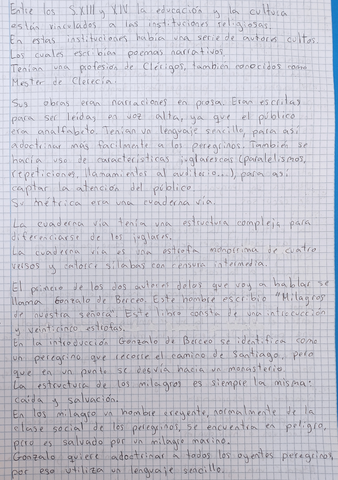 Entre los S.XIII y XIV la educación y la cultura
están vinculados a las instituciones religiosas.
En estas instituciones había una serie de autores cultos.
Los cuales escribían poemas narrativos.
Tenían una profesión de Clérigos, también conocidos como
Mester de Clerecía.
Sus obras eran narraciones en prosa. Eran escritas
para ser leidas en voz alta, ya que el público
era analfabeto. Tenían un lenguaje sencillo, para así
adoctrinar más facilmente a los peregrinos. También se
hacía uso de características juglarescas (paralelismos,
repeticiones, llamamientos al auditorio...), para así
captar la atención del público.
Su métrica era una cuaderna vía.
La cuaderna vía tenía una estructura compleja para
diferenciarse de los juglares.
La cuaderna vía es una estrofa monorrima de cuatro
versos y catorce sílabas con censura intermedia.
El primero de los dos autores delos que voy a hablar se
llama Gonzalo de Berceo. Este hombre escribio "Milagros
de nuestra señora". Este libro consta de una introducción
y veinticinco estrofas.
En la introducción Gonzalo de Berceo se identifica como
un peregrino que recorre el camino de Santiago, pero
que en un punto se desvía hacia un monasterio.
La estructura de los milagros es siempre la misma:
caída y salvación.
En los milagro un hombre creyente, normalmente de la
clase social de los peregrinos, se encuentra en peligro,
pero es salvado por un milagro mariano.
Gonzalo quiere adoctrinar a todos los oyentes peregrinos,
por eso utiliza un lenguaje sencillo.